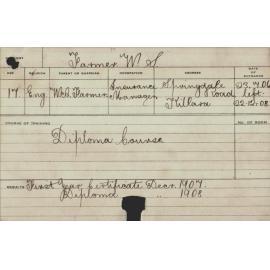 Farmer W. S.
AGE RELIGION PARENT OR GUARDIAN OCCUPATION ADDRESS
17 Eng. Farmer Insurance Manager Springdale Road Killara 03.7.06 left 02.12.08
COURSE OF TRAINING NO. OF ROOM
Diploma Course
RESULTS First Year Certificate Decr. 1907.
Diploma " 1908